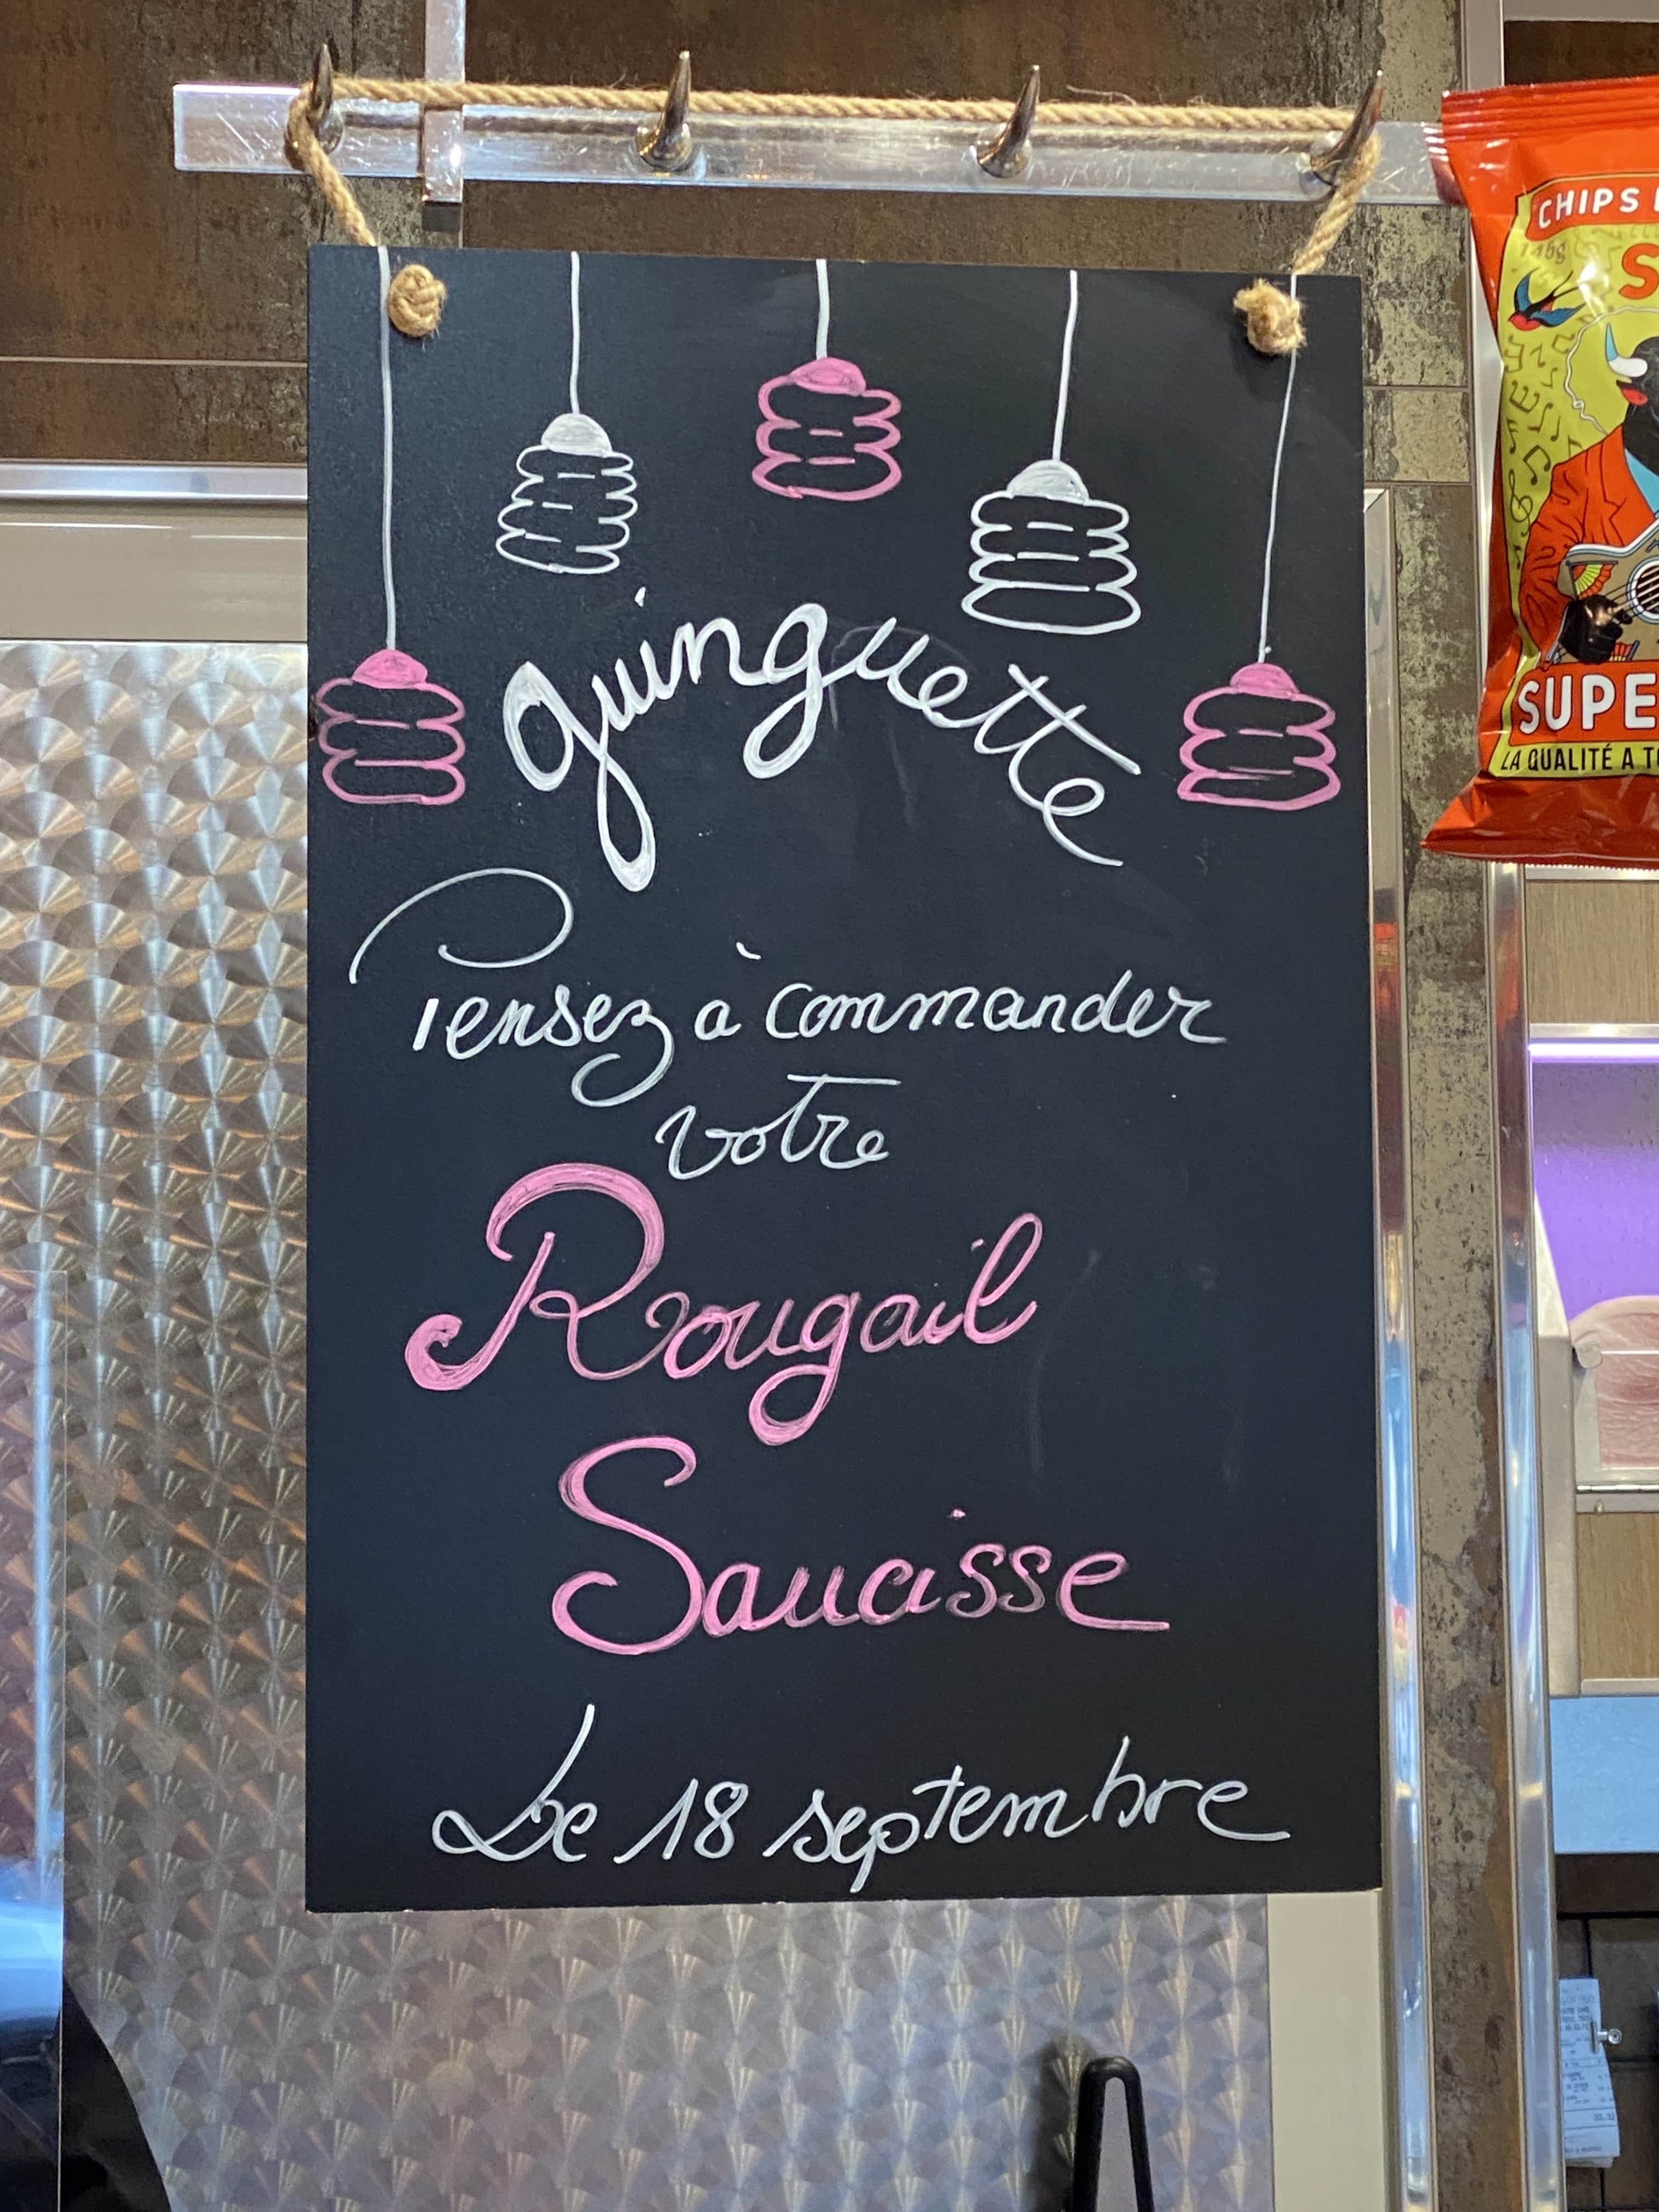 guinguette
Pensez à commander
votre
Rougail
Saucisse
Le 18 septembre
CHIPS
145g
S
SUPE
LA QUALITÉ A